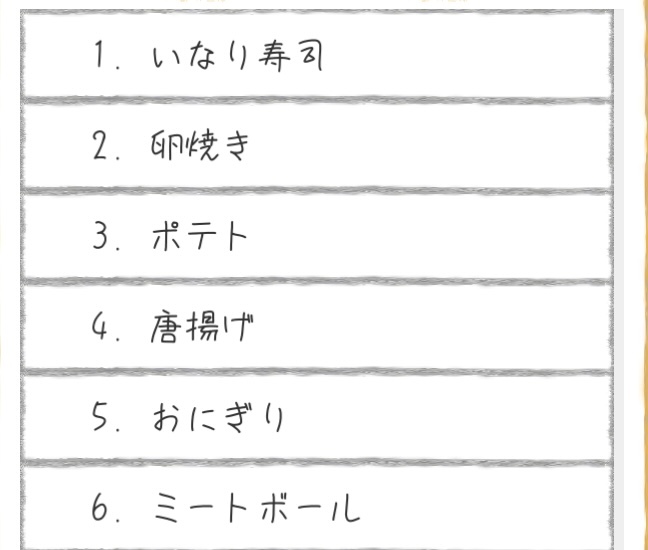 1. いなり寿司
2. 卵焼き
3. ポテト
4. 唐揚げ
5. おにぎり
6. ミートボール